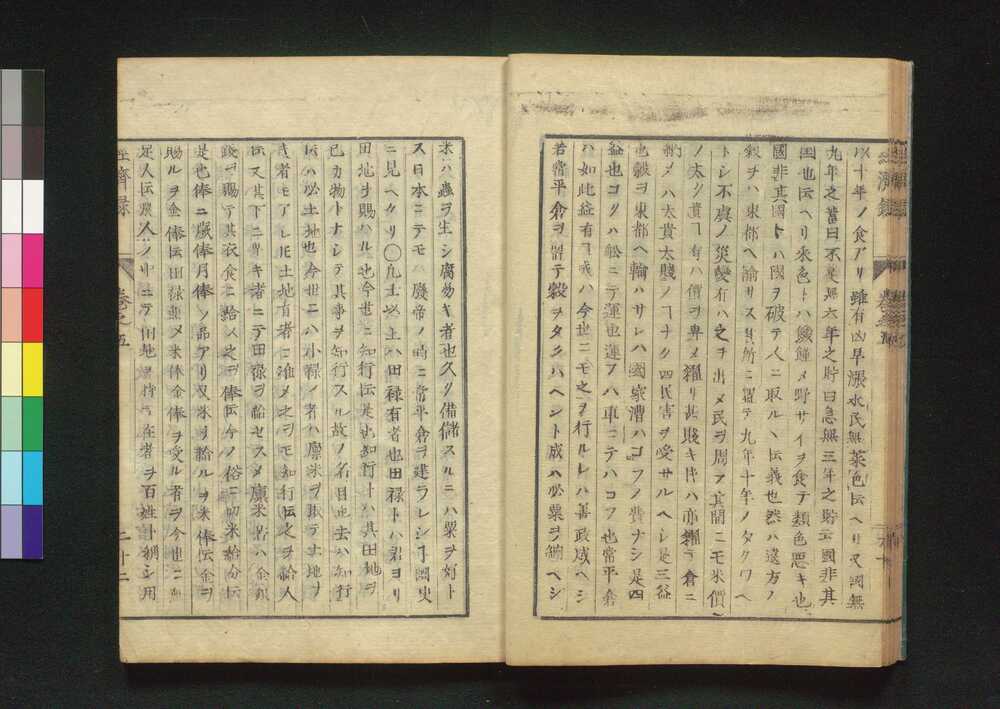 以十年ノ食アリ雖有凶旱漲水民無菜色伝ヘリ又国無
九年之蓄曰不足無六年之貯曰急無三年之貯云国非其
国也伝ヘリ采色トハ饑饉メ野サイヲ食テ類色悪キ也
国非其国トハ国ヲ破テ人ニ取ルヽ伝義也然ハ遠方ノ
穀ヲハ東都ヘ諭リス其所ニ置テ九年十年ノタクワヘ
トシ不虞ノ災変有ハ之ヲ出メ民ヲ周フ其間ニモ米價
ノ太タ貴キ有ハ價ヲ卑メ糶リ甚賤キ時ハ亦糴テ倉ニ
納メハ太貴太賤ノナク四民害ヲ受サルヘシ是三益
也穀ヲ東都ヘ輸ハサレハ國家漕ハコフノ費ナシ是四
益也コクハ船ニテ運也運フハ車ニテハコフ也常平倉
ハ如此益有哉ハ今世ニモ之ヲ行ルレハ善政成ヘシ
若常平倉ヲ置テ穀ヲタクハヘント成ハ必粟ヲ納ヘシ
米ハ蟲ヲ生シ腐易キ者也久ク備儲スルニハ粟ヲ好ト
ス日本ニテモ廢帝ノ時ニ常平倉ヲ建ラレシ国史
ニ見ヘタリ〇凡士以上ハ田禄有者也田禄トハ君ヨリ
田地ヲ賜ハル也今世ニ知行伝是也知行トハ其田地ヲ
己カ物トナシテ其事ヲ知行スル故ノ名目也去ハ知行
伝ハ必土地也今世ニハ小禄ノ者ハ廪米ヲ取テ土地ナ
キ者モアレ土地有者ニ准メ之ヲモ知行伝之ヲ給人
伝又其下ニ賤キ者ニテ田禄ヲ給セスメ廩米若ハ金銀
銭ヲ賜テ其衣食ニ給ス之ヲ俸伝今ノ俗ニ切米給分伝
是也俸ニ歳俸月俸ノ品アリ又米ヲ輸ルヲ米俸伝金ヲ
賜ルヲ金俸伝田禄無メ米俸金俸ヲ受ル者ヲ今世ニ
足人伝農人ノ中ニテ田地ヲ持テ在者ヲ百姓ト稱シ用
經濟録
巻之五
二十二